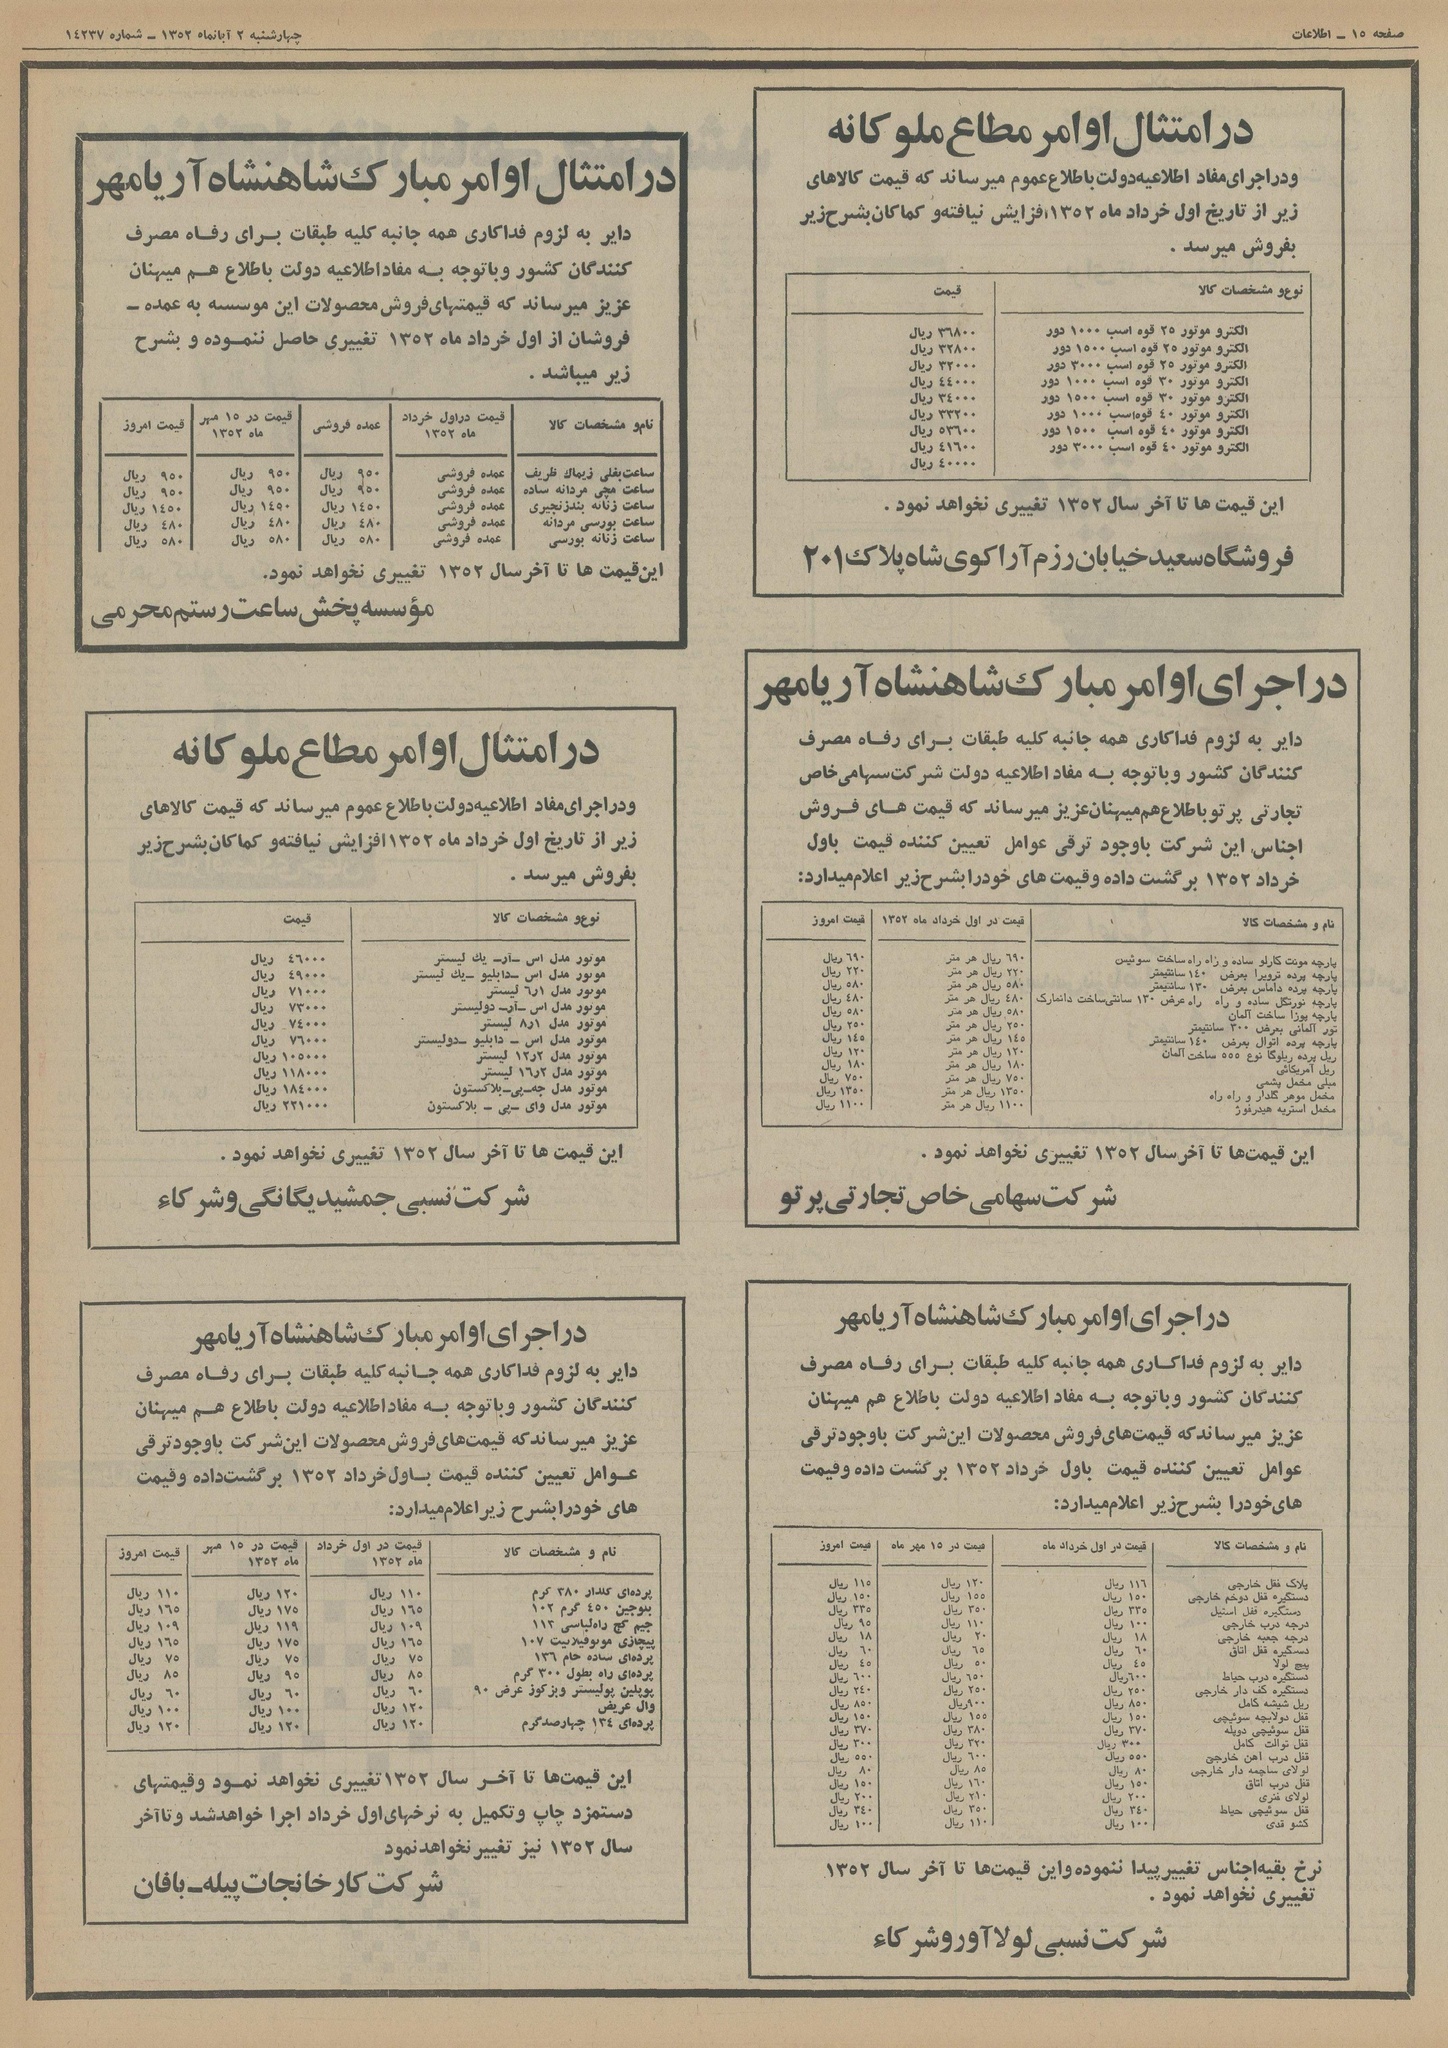 صفحه ۱۵ ــ اطلاعات
چهارشنبه ۲ آبانماه ۱۳۵۲ ــ شماره ۱٤۲۳۷
در امتثال اوامر مطاع ملوکانه
ودر اجرای مفاد اطلاعیه دولت باطلاع عموم میرساند که قیمت کالاهای
زیر از تاریخ اول خرداد ماه ۱۳۵۲ افزایش نیافته و کماکان بشرح زیر
بفروش میرسد .
نوع و مشخصات کالا | قیمت
الکترو موتور ۲۵ قوه اسب ۱۰۰۰ دور | ۳٦۸۰۰ ریال
الکترو موتور ۲۵ قوه اسب ۱۵۰۰ دور | ۳۲۸۰۰ ریال
الکترو موتور ۲۵ قوه اسب ۳۰۰۰ دور | ۳۲۰۰۰ ریال
الکترو موتور ۳۰ قوه اسب ۱۰۰۰ دور | ٤٤۰۰۰ ریال
الکترو موتور ۳۰ قوه اسب ۱۵۰۰ دور | ۳٤۰۰۰ ریال
الکترو موتور ٤۰ قوه اسب ۱۰۰۰ دور | ۳۳۲۰۰ ریال
الکترو موتور ٤۰ قوه اسب ۱۵۰۰ دور | ۵۳٦۰۰ ریال
الکترو موتور ٤۰ قوه اسب ۳۰۰۰ دور | ٤۱٦۰۰ ریال
٤۰۰۰۰ ریال
این قیمت ها تا آخر سال ۱۳۵۲ تغییری نخواهد نمود .
فروشگاه سعید خیابان رزم آرا کوی شاه پلاک ۲۰۱
در امتثال اوامر مبارک شاهنشاه آریامهر
دایر به لزوم فداکاری همه جانبه کلیه طبقات بـرای رفـاه مصرف
کنندگان کشور و باتوجه بـه مفاد اطلاعیه دولت باطلاع هـم میهنان
عزیز میرساند که قیمتهای فروش محصولات این موسسه به عمده ــ
فروشان از اول خرداد ماه ۱۳۵۲ تغییری حاصل ننمـوده و بشرح
زیر میباشد .
نام و مشخصات کالا | قیمت در اول خرداد ماه ۱۳۵۲ | عمده فروشی | قیمت در ۱۵ مهر ماه ۱۳۵۲ | قیمت امروز
ساعت بغلی زیماک ظریف | عمده فروشی | ۹۵۰ ریال | ۹۵۰ ریال | ۹۵۰ ریال
ساعت مچی مردانه ساده | عمده فروشی | ۹۵۰ ریال | ۹۵۰ ریال | ۹۵۰ ریال
ساعت زنانه بندزنجیری | عمده فروشی | ۱٤۵۰ ریال | ۱٤۵۰ ریال | ۱٤۵۰ ریال
ساعت بورسی مردانه | عمده فروشی | ٤۸۰ ریال | ٤۸۰ ریال | ٤۸۰ ریال
ساعت زنانه بورسی | عمده فروشی | ۵۸۰ ریال | ۵۸۰ ریال | ۵۸۰ ریال
این قیمت ها تا آخر سال ۱۳۵۲ تغییری نخواهد نمود.
مؤسسه پخش ساعت رستم محرمی
در اجرای اوامر مبارک شاهنشاه آریامهر
دایر به لزوم فداکاری همه جانبه کلیه طبقات بـرای رفـاه مصرف
کنندگان کشور و باتوجه بـه مفاد اطلاعیه دولت شرکت سهامی خاص
تجارتی پرتو باطلاع هم میهنان عزیز میرساند که قیمت های فـروش
اجناس این شرکت باوجود ترقی عوامل تعیین کننده قیمت باول
خرداد ۱۳۵۲ برگشت داده و قیمت های خود را بشرح زیر اعلام میدارد:
نام و مشخصات کالا | قیمت در اول خرداد ماه ۱۳۵۲ | قیمت امروز
پارچه مونت کارلو ساده و راه راه ساخت سوئیس | ٦۹۰ ریال هر متر | ٦۹۰ ریال
پارچه پرده ترویرا بعرض ۱٤۰ سانتیمتر | ۲۲۰ ریال هر متر | ۲۲۰ ریال
پارچه پرده داماس بعرض ۱۳۰ سانتیمتر | ۵۸۰ ریال هر متر | ۵۸۰ ریال
پارچه نورتگل ساده و راه راه عرض ۱۳۰ سانتی ساخت دانمارک | ٤۸۰ ریال هر متر | ٤۸۰ ریال
پارچه پوزا ساخت آلمان | ۵۸۰ ریال هر متر | ۵۸۰ ریال
تور آلمانی بعرض ۳۰۰ سانتیمتر | ۲۵۰ ریال هر متر | ۲۵۰ ریال
پارچه پرده اتوال بعرض ۱٤۰ سانتیمتر | ۱٤۵ ریال هر متر | ۱٤۵ ریال
ریل پرده ریلوگا نوع ۵۵۵ ساخت آلمان | ۱۲۰ ریال هر متر | ۱۲۰ ریال
ریل آمریکائی | ۱۸۰ ریال هر متر | ۱۸۰ ریال
مبلی مخمل پشمی | ۷۵۰ ریال هر متر | ۷۵۰ ریال
مخمل موهر گلدار و راه راه | ۱۳۵۰ ریال هر متر | ۱۳۵۰ ریال
مخمل استریه هیدرفوژ | ۱۱۰۰ ریال هر متر | ۱۱۰۰ ریال
این قیمت‌ها تا آخر سال ۱۳۵۲ تغییری نخواهد نمود .
شرکت سهامی خاص تجارتی پرتو
در امتثال اوامر مطاع ملوکانه
ودر اجرای مفاد اطلاعیه دولت باطلاع عموم میرساند که قیمت کالاهای
زیر از تاریخ اول خرداد ماه ۱۳۵۲ افزایش نیافته و کماکان بشرح زیر
بفروش میرسد .
نوع و مشخصات کالا | قیمت
موتور مدل اس ــ آر ــ یک لیستر | ٤٦۰۰۰ ریال
موتور مدل اس ــ دابلیو ــ یک لیستر | ٤۹۰۰۰ ریال
موتور مدل ۱ر٦ لیستر | ۷۱۰۰۰ ریال
موتور مدل اس ــ آر ــ دولیستر | ۷۳۰۰۰ ریال
موتور مدل ۱ر۸ لیستر | ۷٤۰۰۰ ریال
موتور مدل اس ــ دابلیو ــ دولیستر | ۷٦۰۰۰ ریال
موتور مدل ۲ر۱۲ لیستر | ۱۰۵۰۰۰ ریال
موتور مدل ۲ر۱٦ لیستر | ۱۱۸۰۰۰ ریال
موتور مدل جه ــ پی ــ بلاکستون | ۱۸٤۰۰۰ ریال
موتور مدل وای ــ پی ــ بلاکستون | ۲۳۱۰۰۰ ریال
این قیمت ها تا آخر سال ۱۳۵۲ تغییری نخواهد نمود .
شرکت نسبی جمشید یگانگی و شرکاء
در اجرای اوامر مبارک شاهنشاه آریامهر
دایر به لزوم فداکـاری همه جانبه کلیه طبقات بـرای رفـاه مصرف
کنندگان کشور و باتوجه بـه مفاد اطلاعیه دولت باطلاع هم میهنان
عزیز میرساند که قیمت‌های فروش محصولات این شرکت باوجود ترقی
عوامل تعیین کننده قیمت باول خرداد ۱۳۵۲ برگشت داده و قیمت
های خود را بشرح زیر اعلام میدارد:
نام و مشخصات کالا | قیمت در اول خرداد ماه | قیمت در ۱۵ مهر ماه | قیمت امروز
پلاک قفل خارجی | ۱۱٦ ریال | ۱۲۰ ریال | ۱۱۵ ریال
دستگیره قفل دوخم خارجی | ۱۵۰ ریال | ۱۵۵ ریال | ۱۵۰ ریال
دستگیره قفل استیل | ۳۳۵ ریال | ۳۵۰ ریال | ۳۳۵ ریال
درجه درب خارجی | ۱۰۰ ریال | ۱۱۰ ریال | ۹۵ ریال
درجه جعبه خارجی | ۱۸ ریال | ۲۰ ریال | ۱۸ ریال
دستگیره قفل اتاق | ٦۰ ریال | ٦۵ ریال | ٦۰ ریال
پیچ لولا | ٤۵ ریال | ۵۰ ریال | ٤۵ ریال
دستگیره درب حیاط | ٦۰۰ ریال | ٦۵۰ ریال | ٦۰۰ ریال
دستگیره کف دار خارجی | ۲۵۰ ریال | ۲۵۰ ریال | ۲٤۰ ریال
ریل شیشه کامل | ۸۵۰ ریال | ۹۰۰ ریال | ۸۵۰ ریال
قفل دولابچه سوئیچی | ۱۵۰ ریال | ۱۵۵ ریال | ۱۵۰ ریال
قفل سوئیچی دوپله | ۳۷۰ ریال | ۳۸۰ ریال | ۳۷۰ ریال
قفل توالت کامل | ۳۰۰ ریال | ۳۲۰ ریال | ۳۰۰ ریال
قفل درب آهن خارجی | ۵۵۰ ریال | ٦۰۰ ریال | ۵۵۰ ریال
لولای ساچمه دار خارجی | ۸۰ ریال | ۸۵ ریال | ۸۰ ریال
قفل درب اتاق | ۱۵۰ ریال | ۱٦۰ ریال | ۱۵۰ ریال
لولای فنری | ۲۰۰ ریال | ۲۱۰ ریال | ۲۰۰ ریال
قفل سوئیچی حیاط | ۳٤۰ ریال | ۳۵۰ ریال | ۳٤۰ ریال
کشو قدی | ۱۰۰ ریال | ۱۱۰ ریال | ۱۰۰ ریال
نرخ بقیه اجناس تغییر پیدا ننموده و این قیمت‌ها تا آخر سال ۱۳۵۲
تغییری نخواهد نمود .
شرکت نسبی لولا آور و شرکاء
در اجرای اوامر مبارک شاهنشاه آریامهر
دایر به لزوم فداکاری همه جـانبه کلیه طبقات بـرای رفـاه مصرف
کنندگان کشور و باتوجه بـه مفاد اطلاعیه دولت باطلاع هـم میهنان
عزیز میرساند که قیمت‌های فروش محصولات این شرکت باوجود ترقی
عـوامل تعیین کننده قیمت بـاول خرداد ۱۳۵۲ برگشت داده و قیمت
های خود را بشرح زیر اعلام میدارد:
نام و مشخصات کالا | قیمت در اول خرداد ماه ۱۳۵۲ | قیمت در ۱۵ مهر ماه ۱۳۵۲ | قیمت امروز
پرده‌ای گلدار ۳۸۰ گرم | ۱۱۰ ریال | ۱۲۰ ریال | ۱۱۰ ریال
بلوجین ٤۵۰ گرم ۱۰۲ | ۱٦۵ ریال | ۱۷۵ ریال | ۱٦۵ ریال
جیم کج راه لباسی ۱۱۲ | ۱۰۹ ریال | ۱۱۹ ریال | ۱۰۹ ریال
پیچازی مونوفیلامنت ۱۰۷ | ۱٦۵ ریال | ۱۷۵ ریال | ۱٦۵ ریال
پرده‌ای ساده خام ۱۳٦ | ۷۵ ریال | ۷۵ ریال | ۷۵ ریال
پرده‌ای راه بطول ۳۰۰ گرم | ۸۵ ریال | ۹۵ ریال | ۸۵ ریال
پوپلین پولیستر ویزکوز عرض ۹۰ | ٦۰ ریال | ٦۰ ریال | ٦۰ ریال
وال عریض | ۱۲۰ ریال | ۱۰۰ ریال | ۱۰۰ ریال
پرده‌ای ۱۳٤ چهارصد گرم | ۱۲۰ ریال | ۱۲۰ ریال | ۱۲۰ ریال
این قیمت‌ها تا آخـر سال ۱۳۵۲ تغییری نخواهد نمـود و قیمتهای
دستمزد چاپ و تکمیل به نرخهای اول خرداد اجرا خواهد شد و تا آخر
سال ۱۳۵۲ نیز تغییر نخواهد نمود
شرکت کارخانجات پیله ــ بافان